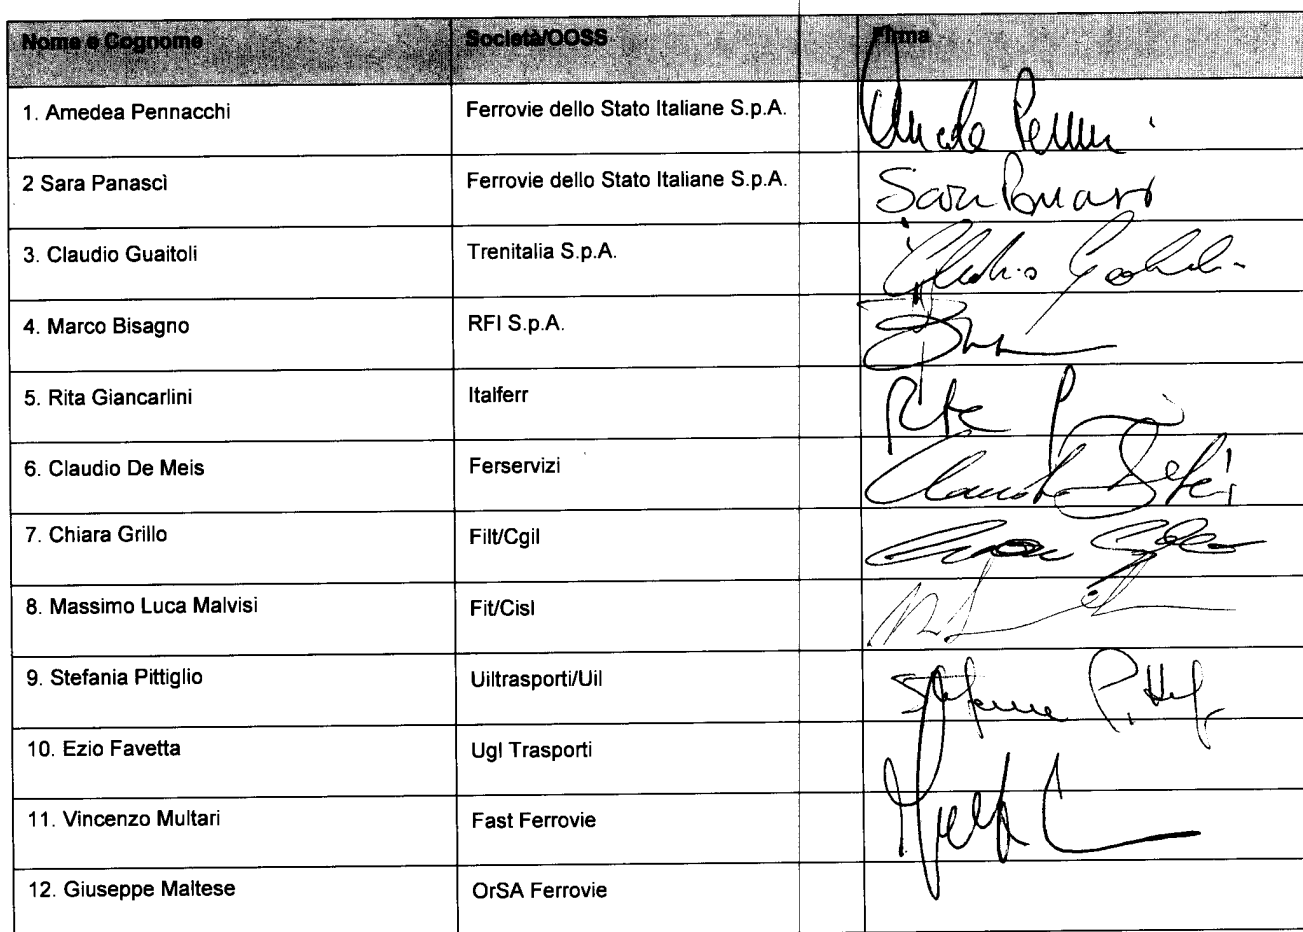 Nome e Cognome Società/OOSS Firma
1. Amedea Pennacchi Ferrovie dello Stato Italiane S.p.A.
2 Sara Panascì Ferrovie dello Stato Italiane S.p.A.
3. Claudio Guaitoli Trenitalia S.p.A.
4. Marco Bisagno RFI S.p.A.
5. Rita Giancarlini Italferr
6. Claudio De Meis Ferservizi
7. Chiara Grillo Filt/Cgil
8. Massimo Luca Malvisi Fit/Cisl
9. Stefania Pittiglio Uiltrasporti/Uil
10. Ezio Favetta Ugl Trasporti
11. Vincenzo Multari Fast Ferrovie
12. Giuseppe Maltese OrSA Ferrovie